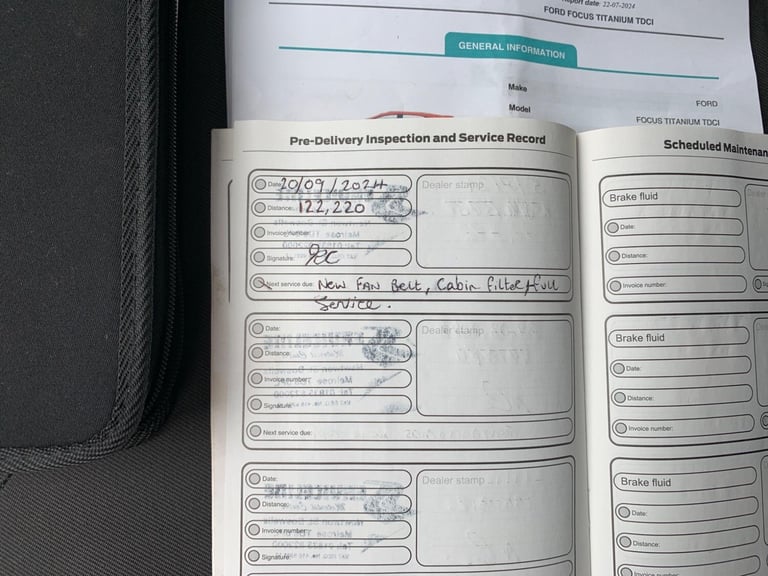 Report date: 22-07-2024
FORD FOCUS TITANIUM TDCI
GENERAL INFORMATION
Make
FORD
Model
FOCUS TITANIUM TDCI
Pre-Delivery Inspection and Service Record
Date: 20/09/2024
Dealer stamp
Distance: 122,220
Invoice number:
Signature:
Next service due: New FAN Belt, Cabin filter + full
Service.
Date:
Dealer stamp
Distance:
Invoice number:
Signature:
Next service due:
Date:
Dealer stamp
Distance:
Invoice number:
Signature:
Scheduled Maintenan
Brake fluid
Date:
Distance:
Invoice number:
Brake fluid
Date:
Distance:
Invoice number:
Brake fluid
Date:
Distance:
Invoice number: